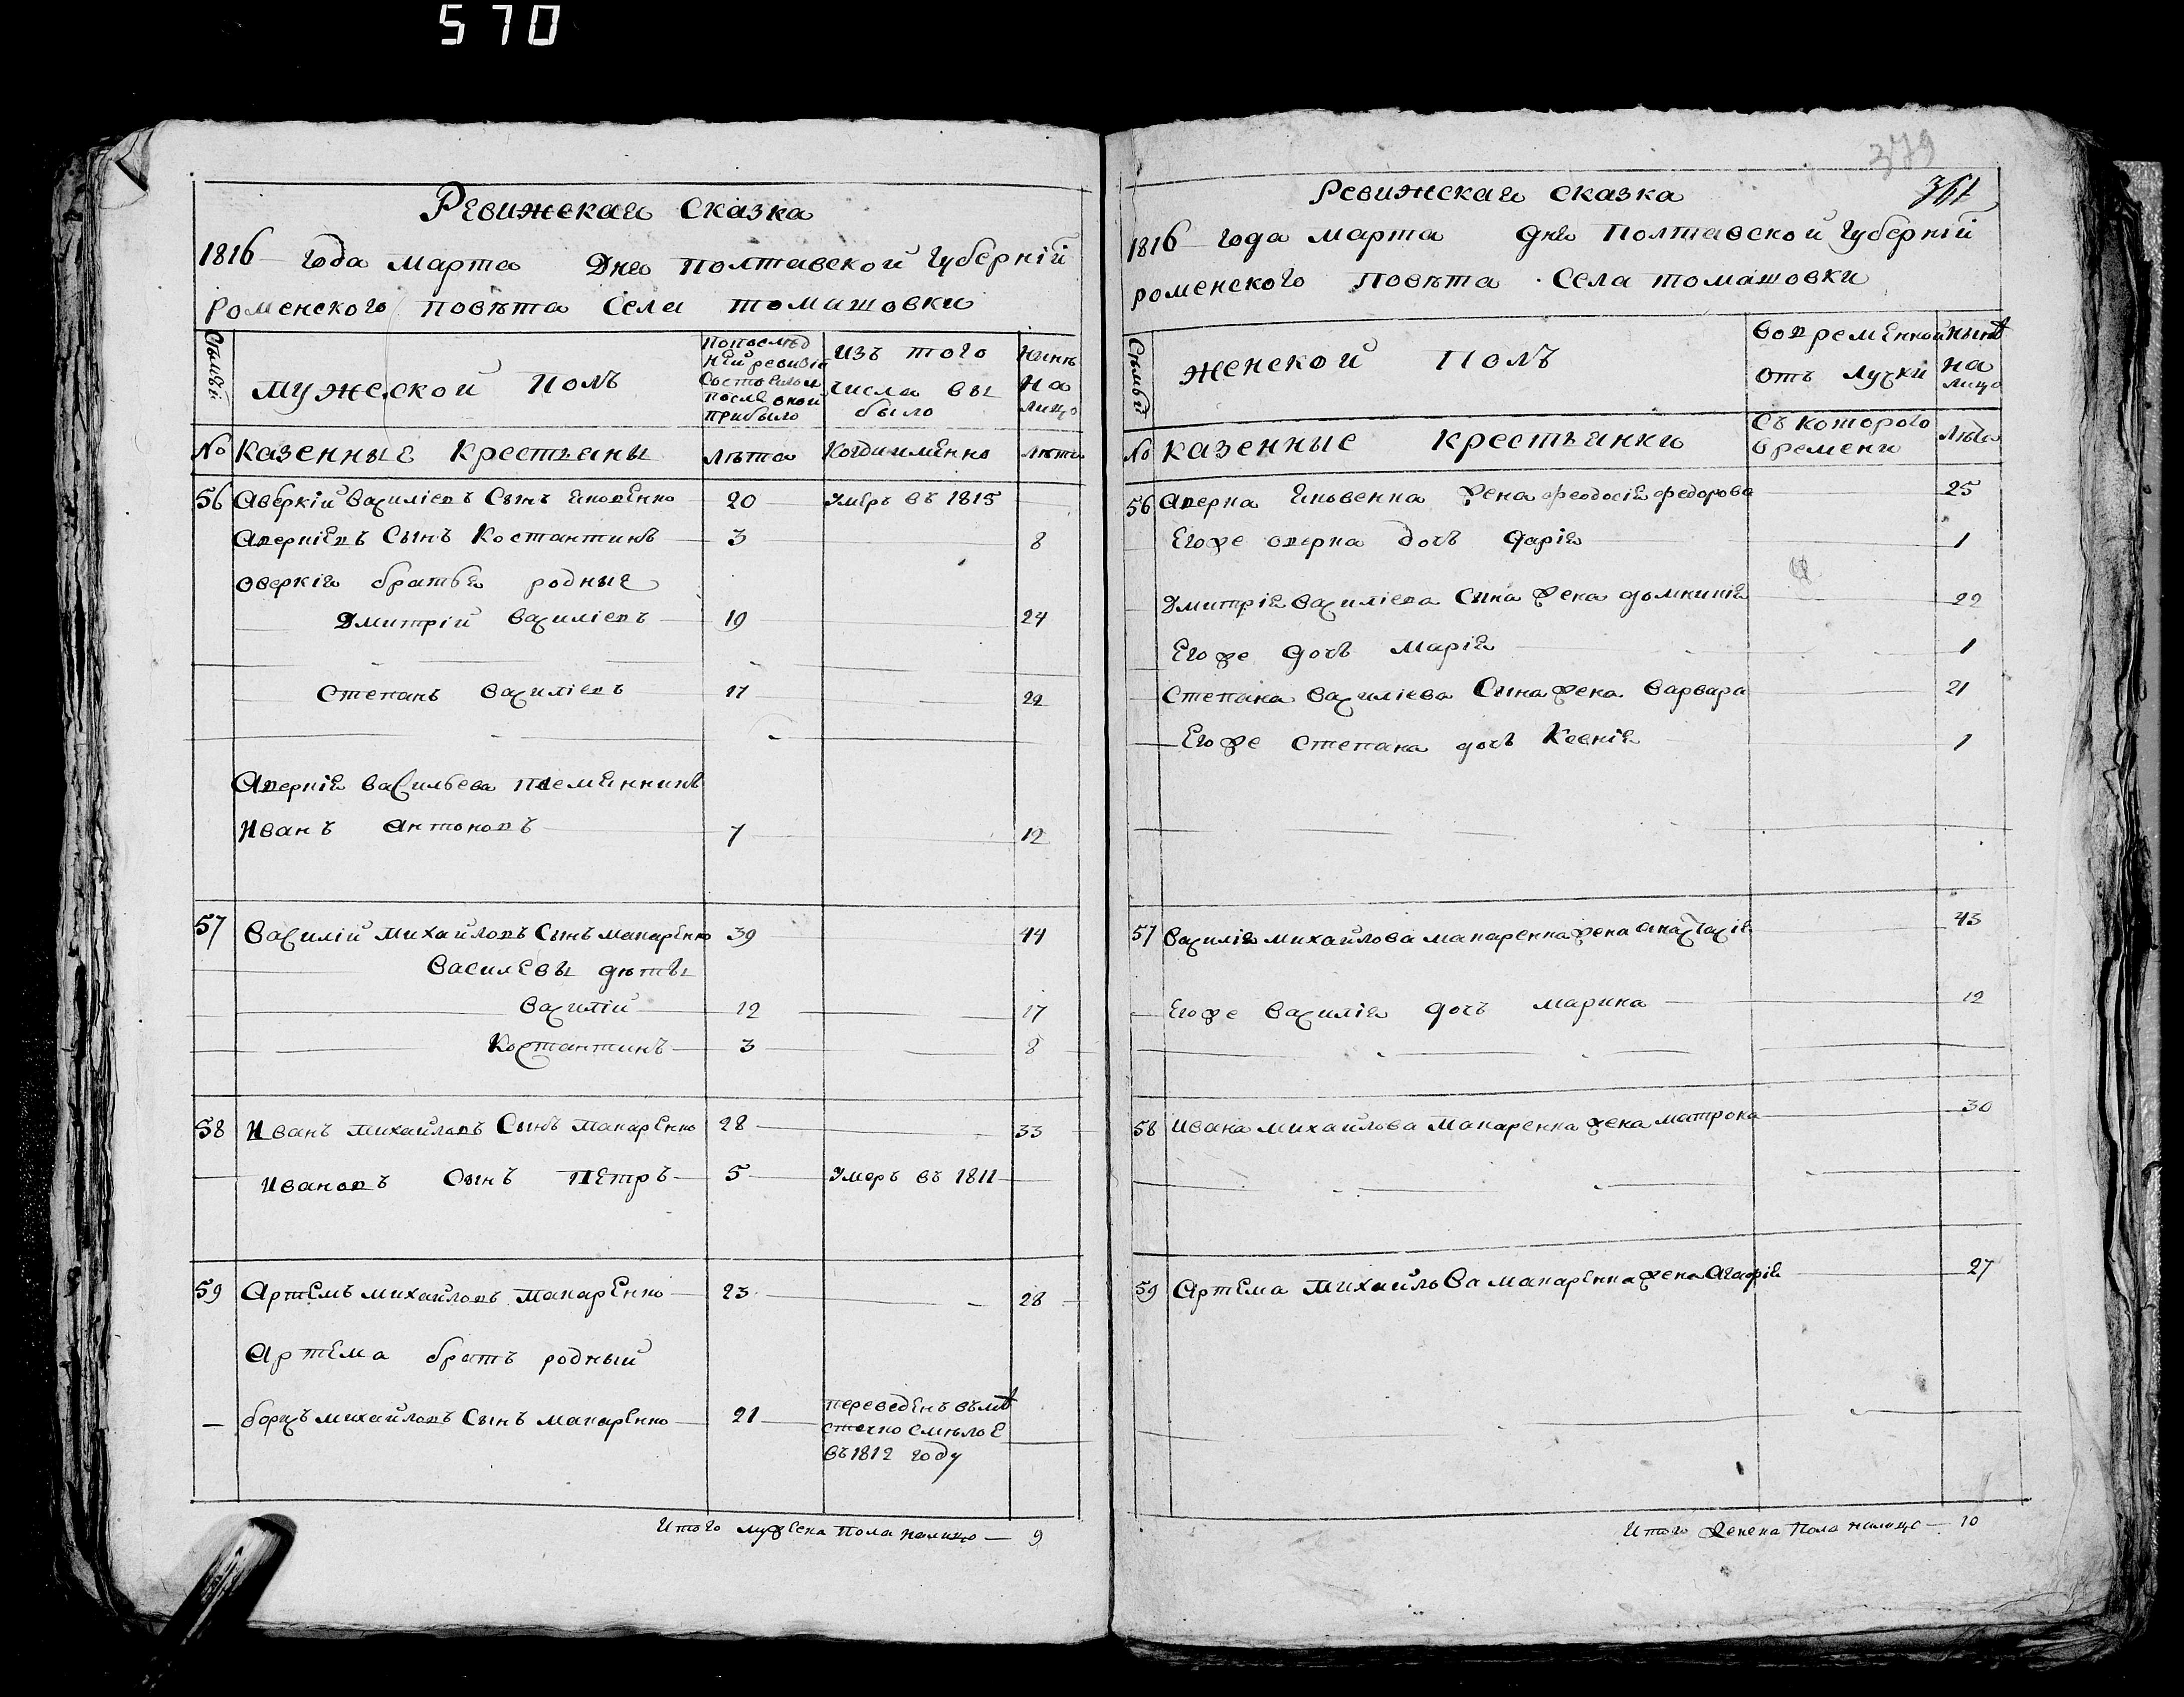 570
Ревижская Сказка
1816 года марта Дня Полтавской Губерній
Роменского повѣта Села томашовки
Семьи
мужеской полъ
По послѣд
ней ревизіи
состояло и
после оной
прибыло
Изъ того
числа вы
было
нынѣ
на
лицо
№ Казенные Крестьяны
лѣта
Когда именно
лѣта
56 Аверкій Василіевъ Сынъ Яковенко 20 Умеръ въ 1815
Аверкіевъ Сынъ Костантинъ 3 8
Оверкія братья родные
Дмитрій Василіевъ 19 24
Степанъ Василіевъ 17 22
Аверкія Васильева племянникъ
Иванъ Антоновъ 7 12
57 Василій михайловъ Сынъ макаренко 39 44
Василевы дѣты
Василій 12 17
Костантинъ 3 8
58 Иванъ михайловъ Сынъ макаренко 28 33
Ивановъ Сынъ Петръ 5 Умеръ въ 1811
59 Артемъ михайловъ макаренко 23 28
Артема братъ родный
борисъ михайловъ Сынъ макаренко 21
переведенъ въ мѣ
стечко Смѣлое
въ 1812 году
Итого мужеска пола налицо — 9
379
361
Ревижская сказка
1816 года марта дня Полтавской Губерній
роменского Повѣта Села томашовки
Семьи
женской полъ
Во временной
отъ лучки
нынѣ
на
лицо
№ казенные крестьянки
Съ которого
времени
лѣта
56 Аверка Яковенка жена феодосія федорова 25
Его же оверка дочъ дарія 1
Дмитрія Василіева Сына жена домникія 22
Его же дочъ Марія 1
Степана Василіева Сына жена Варвара 21
Его же Степана дочъ Ксенія 1
57 Василія михайлова макаренка жена анастасія 43
Его же Василія дочъ марина 12
58 Ивана михайлова макаренка жена матрона 30
59 Артема михайлова макаренка жена Агафія 27
Итого женска пола налицо — 10